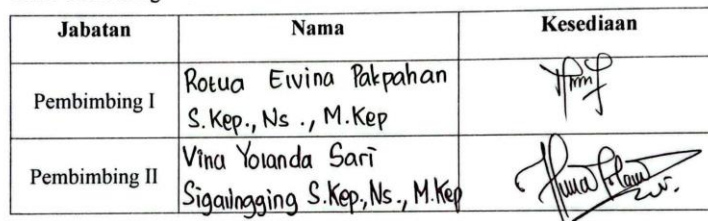 Jabatan Nama Kesediaan
Pembimbing I
Rotua Elvina Pakpahan
S.Kep., Ns ., M.Kep
Pembimbing II
Vina Yolanda Sari
Sigalingging S.Kep., Ns., M.Kep